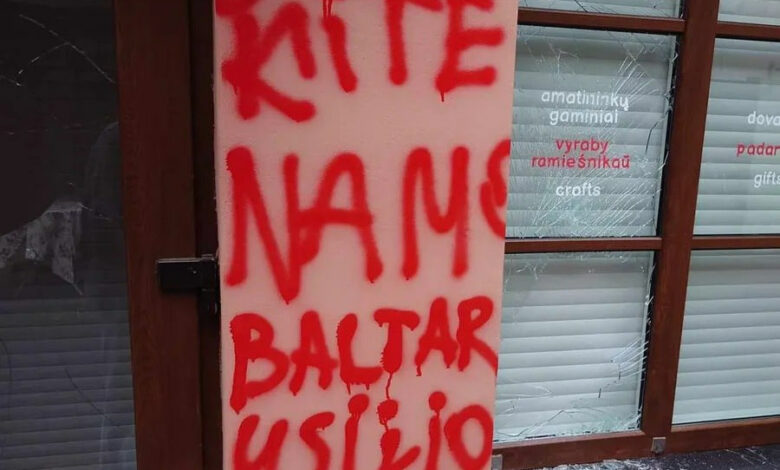 NAMO
BALTAR
USILIO
amatininkų
gaminiai
vyraby
ramieśnikaŭ
crafts
dova
padar
gifts